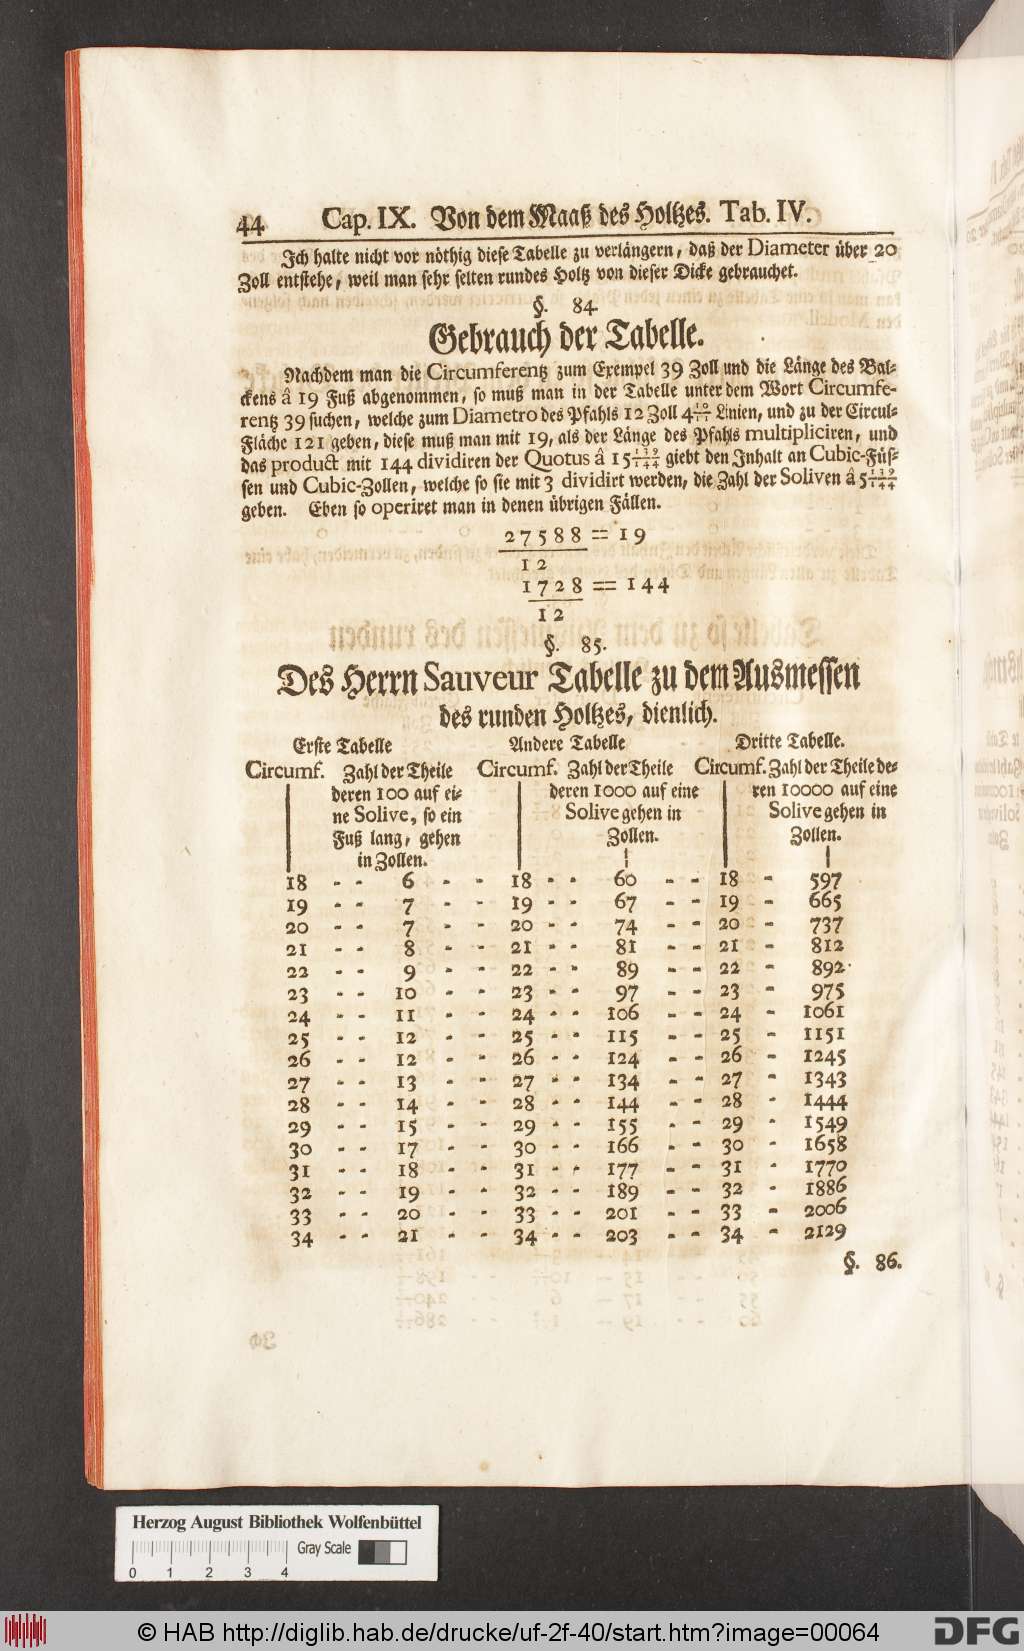 44 Cap. IX. Von dem Maaß des Holtzes. Tab. IV.
Ich halte nicht vor nöthig diese Tabelle zu verlängern, daß der Diameter über 20
Zoll entstehe, weil man sehr selten rundes Holtz von dieser Dicke gebrauchet.
§. 84.
Gebrauch der Tabelle.
Nachdem man die Circumferentz zum Exempel 39 Zoll und die Länge des Bal-
ckens â 19 Fuß abgenommen, so muß man in der Tabelle unter dem Wort Circumfe-
rentz 39 suchen, welche zum Diametro des Pfahls 12 Zoll 4 10/11 Linien, und zu der Circul-
Fläche 121 geben, diese muß man mit 19, als der Länge des Pfahls multipliciren, und
das product mit 144 dividiren der Quotus â 15 139/144 giebt den Inhalt an Cubic-Füs-
sen und Cubic-Zollen, welche so sie mit 3 dividirt werden, die Zahl der Soliven â 5 139/144
geben. Eben so operiret man in denen übrigen Fällen.
27588 == 19
12
1728 == 144
12
§. 85.
Des Herrn Sauveur Tabelle zu dem Ausmessen
des runden Holtzes, dienlich.
Erste Tabelle Andere Tabelle Dritte Tabelle.
Circumf. Zahl der Theile Circumf. Zahl der Theile Circumf. Zahl der Theile de-
deren 100 auf ei- deren 1000 auf eine ren 10000 auf eine
ne Solive, so ein Solive gehen in Solive gehen in
Fuß lang, gehen Zollen. Zollen.
in Zollen.
18 - - 6 - - 18 - - 60 - - 18 - 597
19 - - 7 - - 19 - - 67 - - 19 - 665
20 - - 7 - - 20 - - 74 - - 20 - 737
21 - - 8 - - 21 - - 81 - - 21 - 812
22 - - 9 - - 22 - - 89 - - 22 - 892
23 - - 10 - - 23 - - 97 - - 23 - 975
24 - - 11 - - 24 - - 106 - - 24 - 1061
25 - - 12 - - 25 - - 115 - - 25 - 1151
26 - - 12 - - 26 - - 124 - - 26 - 1245
27 - - 13 - - 27 - - 134 - - 27 - 1343
28 - - 14 - - 28 - - 144 - - 28 - 1444
29 - - 15 - - 29 - - 155 - - 29 - 1549
30 - - 17 - - 30 - - 166 - - 30 - 1658
31 - - 18 - - 31 - - 177 - - 31 - 1770
32 - - 19 - - 32 - - 189 - - 32 - 1886
33 - - 20 - - 33 - - 201 - - 33 - 2006
34 - - 21 - - 34 - - 203 - - 34 - 2129
§. 86.
Herzog August Bibliothek Wolfenbüttel
Gray Scale
0 1 2 3 4
© HAB http://diglib.hab.de/drucke/uf-2f-40/start.htm?image=00064
DFG